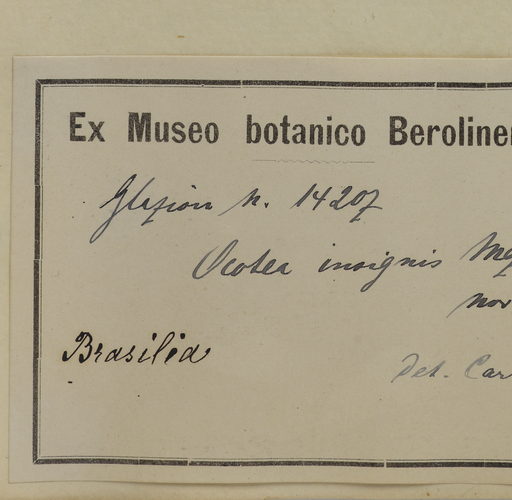 Ex Museo botanico Beroline
Glaziou n. 14207
Ocotea insignis Mez
nov
Brasilia
Det. Car